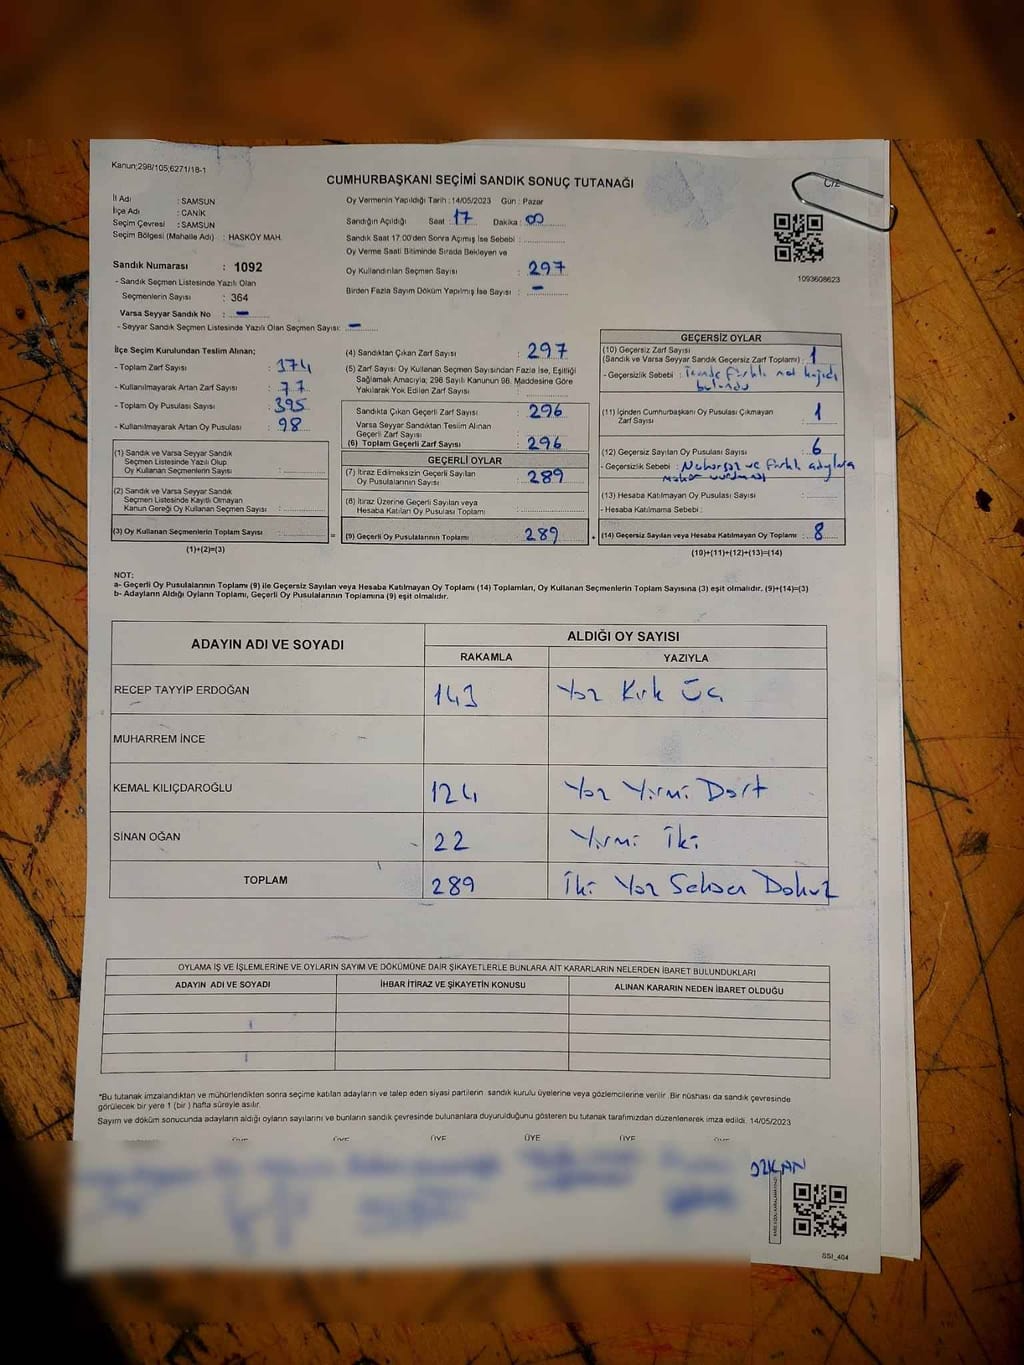 Kanun;298/105;6271/18-1
CUMHURBAŞKANI SEÇİMİ SANDIK SONUÇ TUTANAĞI
İl Adı : SAMSUN
İlçe Adı : CANİK
Seçim Çevresi : SAMSUN
Seçim Bölgesi (Mahalle Adı) : HASKÖY MAH.
Sandık Numarası : 1092
- Sandık Seçmen Listesinde Yazılı Olan
Seçmenlerin Sayısı : 364
Varsa Seyyar Sandık No : -
- Seyyar Sandık Seçmen Listesinde Yazılı Olan Seçmen Sayısı: -
Oy Vermenin Yapıldığı Tarih : 14/05/2023 Gün : Pazar
Sandığın Açıldığı Saat : 17 Dakika : 00
Sandık Saat 17:00'den Sonra Açımış İse Sebebi :
Oy Verme Saati Bitiminde Sırada Bekleyen ve
Oy Kullandırılan Seçmen Sayısı : 297
Birden Fazla Sayım Döküm Yapılmış İse Sayısı : -
1093608623
İlçe Seçim Kurulundan Teslim Alınan;
- Toplam Zarf Sayısı : 374
- Kullanılmayarak Artan Zarf Sayısı : 77
- Toplam Oy Pusulası Sayısı : 395
- Kullanılmayarak Artan Oy Pusulası : 98
(1) Sandık ve Varsa Seyyar Sandık
Seçmen Listesinde Yazılı Olup
Oy Kullanan Seçmenlerin Sayısı :
(2) Sandık ve Varsa Seyyar Sandık
Seçmen Listesinde Kayıtlı Olmayan
Kanun Gereği Oy Kullanan Seçmen Sayısı :
(3) Oy Kullanan Seçmenlerin Toplam Sayısı :
(1)+(2)=(3)
(4) Sandıktan Çıkan Zarf Sayısı : 297
(5) Zarf Sayısı Oy Kullanan Seçmen Sayısından Fazla İse, Eşitliği
Sağlamak Amacıyla, 298 Sayılı Kanunun 98. Maddesine Göre
Yakılarak Yok Edilen Zarf Sayısı :
Sandıkta Çıkan Geçerli Zarf Sayısı : 296
Varsa Seyyar Sandıktan Teslim Alınan
Geçerli Zarf Sayısı :
(6) Toplam Geçerli Zarf Sayısı : 296
GEÇERLİ OYLAR
(7) İtiraz Edilmeksizin Geçerli Sayılan
Oy Pusulalarının Sayısı : 289
(8) İtiraz Üzerine Geçerli Sayılan veya
Hesaba Katılan Oy Pusulası Toplamı :
= (9) Geçerli Oy Pusulalarının Toplamı : 289
GEÇERSİZ OYLAR
(10) Geçersiz Zarf Sayısı
(Sandık ve Varsa Seyyar Sandık Geçersiz Zarf Toplamı) : 1
- Geçersizlik Sebebi :
bulundu
(11) İçinden Cumhurbaşkanı Oy Pusulası Çıkmayan
Zarf Sayısı : 1
(12) Geçersiz Sayılan Oy Pusulası Sayısı : 6
- Geçersizlik Sebebi : ve farklı adylara
(13) Hesaba Katılmayan Oy Pusulası Sayısı :
- Hesaba Katılmama Sebebi :
+ (14) Geçersiz Sayılan veya Hesaba Katılmayan Oy Toplamı : 8
(10)+(11)+(12)+(13)=(14)
NOT:
a- Geçerli Oy Pusulalarının Toplamı (9) ile Geçersiz Sayılan veya Hesaba Katılmayan Oy Toplamı (14) Toplamları, Oy Kullanan Seçmenlerin Toplam Sayısına (3) eşit olmalıdır. (9)+(14)=(3)
b- Adayların Aldığı Oyların Toplamı, Geçerli Oy Pusulalarının Toplamına (9) eşit olmalıdır.
ADAYIN ADI VE SOYADI ALDIĞI OY SAYISI
RAKAMLA YAZIYLA
RECEP TAYYİP ERDOĞAN 143 Yüz Kırk Üç
MUHARREM İNCE
KEMAL KILIÇDAROĞLU 124 Yüz Yirmi Dört
SİNAN OĞAN 22 Yirmi İki
TOPLAM 289 İki Yüz Seksen Dokuz
OYLAMA İŞ VE İŞLEMLERİNE VE OYLARIN SAYIM VE DÖKÜMÜNE DAİR ŞİKAYETLERLE BUNLARA AİT KARARLARIN NELERDEN İBARET BULUNDUKLARI
ADAYIN ADI VE SOYADI İHBAR İTİRAZ VE ŞİKAYETİN KONUSU ALINAN KARARIN NEDEN İBARET OLDUĞU
*Bu tutanak imzalandıktan ve mühürlendikten sonra seçime katılan adayların ve talep eden siyasi partilerin sandık kurulu üyelerine veya gözlemcilerine verilir. Bir nüshası da sandık çevresinde
görülecek bir yere 1 (bir) hafta süreyle asılır.
Sayım ve döküm sonucunda adayların aldığı oyların sayılarını ve bunların sandık çevresinde bulunanlara duyurulduğunu gösteren bu tutanak tarafımızdan düzenlenerek imza edildi. 14/05/2023
ÜYE ÜYE ÜYE ÜYE ÜYE ÜYE
OZKAN
SSI_404